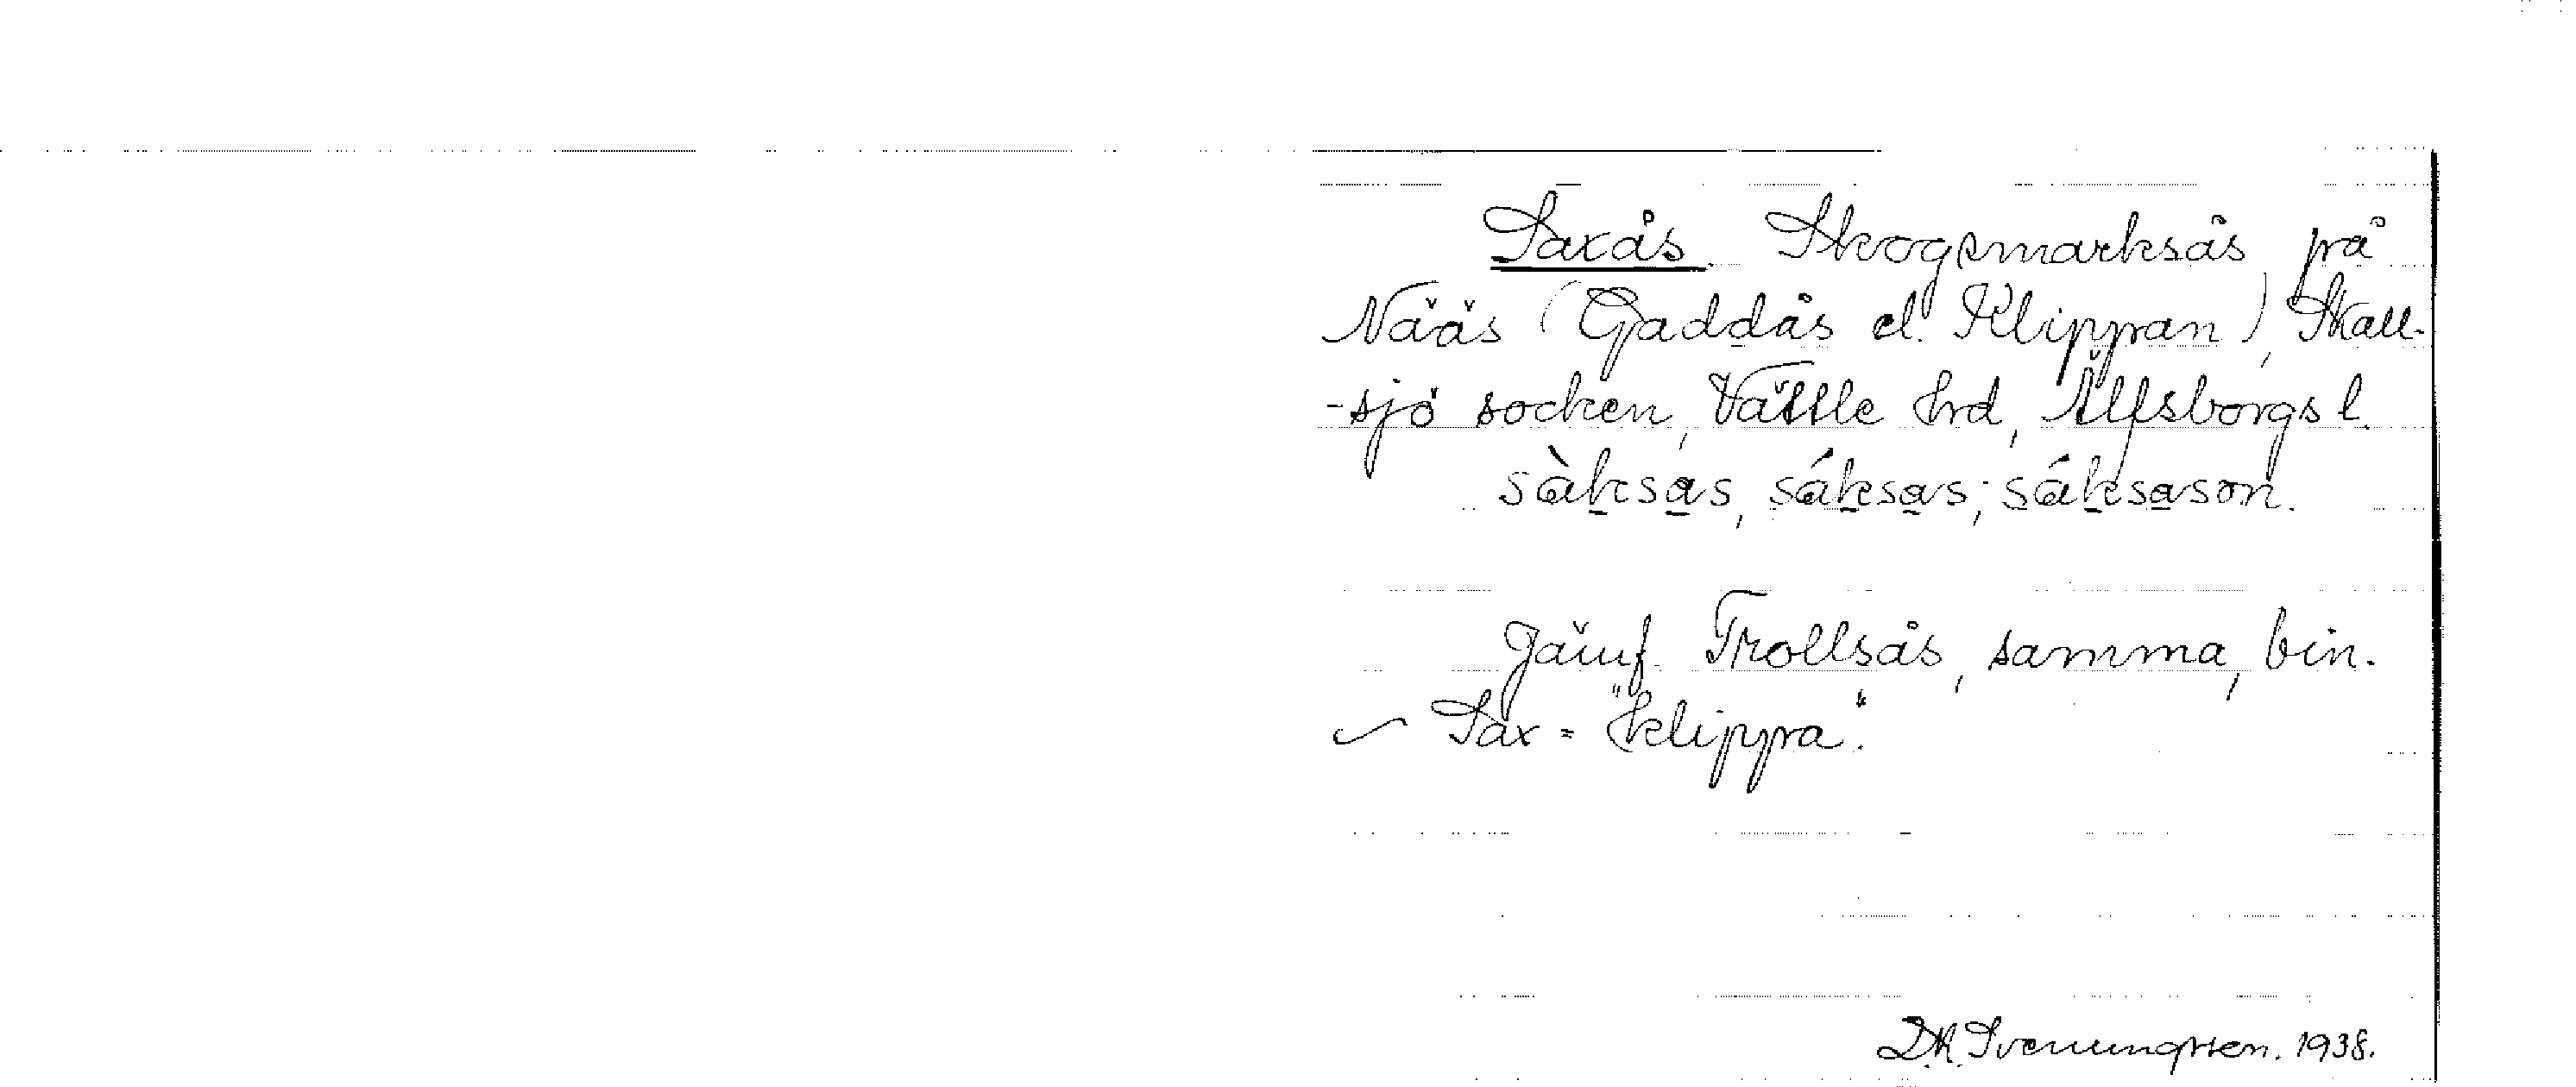 Saxås. Skogsmarksås på
Nääs (Gaddås el. Klippan), Skall-
-sjö socken, Vättle hrd, Älfsborgs l.
sàksas, sáksas; sáksason.
Jämf. Trollsås, samma, bin.
Sax = "klippa".
D.K. Svenungsson. 1938.